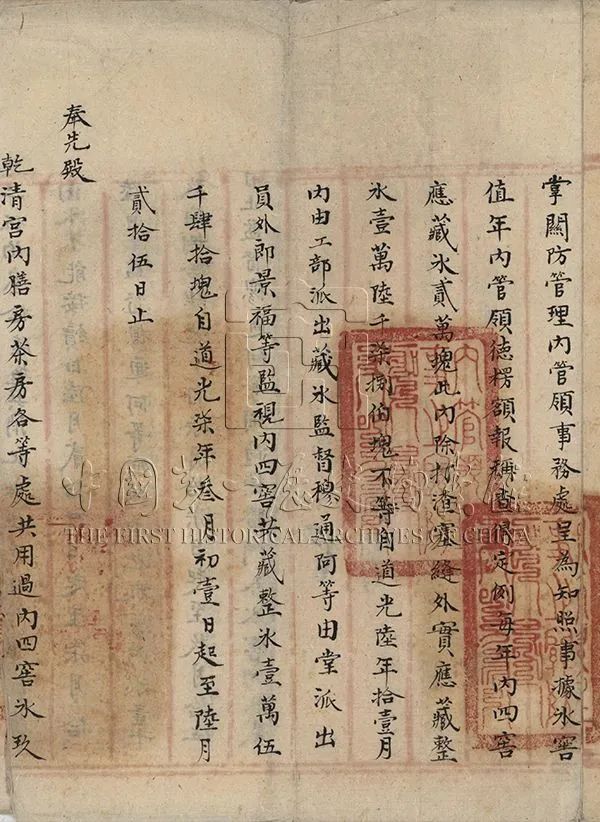 掌關防管理內管領事務處呈為知照事據氷窖
值年內管領德楞額報稱查得定例每年內四窖
應藏氷貳萬塊此內除打渣塞縫外實應藏整
氷壹萬陸千柒捌伯塊不等自道光陸年拾壹月
內由工部派出藏氷監督穆通阿等由堂派出
員外郎景福等監視內四窖共藏整氷壹萬伍
千肆拾塊自道光柒年叁月初壹日起至陸月
貳拾伍日止
奉先殿
乾清宮內膳房茶房各等處共用過內四窖氷玖
中國第一歷史檔案館
THE FIRST HISTORICAL ARCHIVES OF CHINA